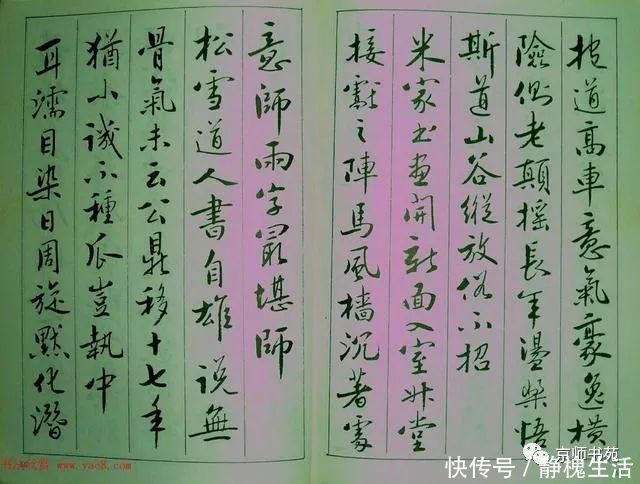 坡道高車意氣豪逸橫
險側老顛搖長年盪槳悟
斯道山谷縱放俗不招
米家書畫開新面入室升堂
接獻之陣馬風檣沉著處
意師兩字最堪師
松雪道人書自雄說無
骨氣未云公鼎移十七年
猶小誡不種瓜豈執中
耳濡目染日周旋默化潛
www.yac8.com
京师书苑
快传号/静槐生活